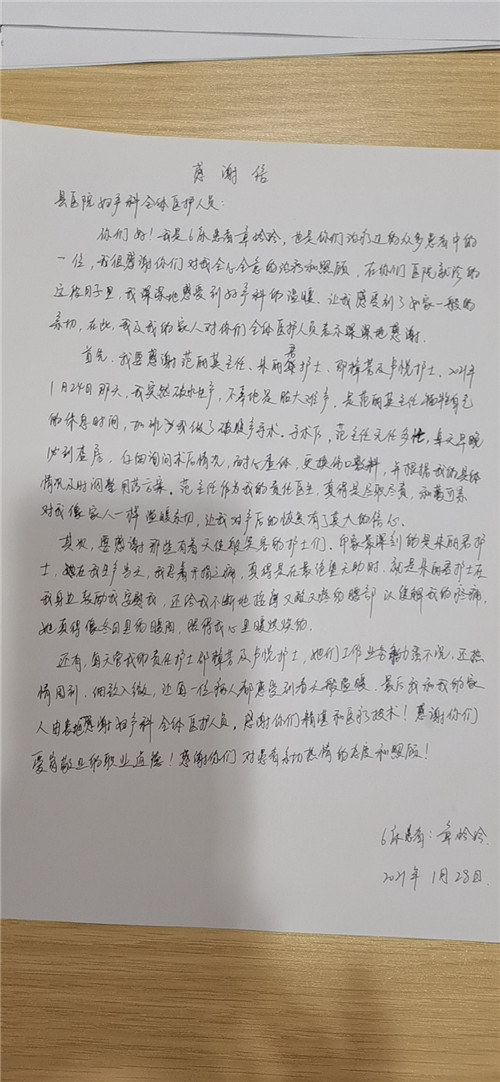 感谢信
县医院妇产科全体医护人员：
你们好！我是6床患者章玲玲，也是你们治疗过的众多患者中的
一位，我很感谢你们对我全心全意的治疗和照顾，在你们医院就诊的
这段日子里，我深深地感受到妇产科的温暖，让我感受到了如家一般的
亲切，在此，我及我的家人对你们全体医护人员表示深深地感谢。
首先，我要感谢范丽英主任、朱丽君护士、邵樟芳及卢悦护士，2021年
1月24日那天，我突然破水生产，不幸他是胎大难产，是范丽英主任牺牲自己
的休息时间，加班为我做了破腹产手术。手术后，范主任无论多忙，每天早晚
必到查房，仔细询问术后情况，耐心查体，更换伤口敷料，并根据我的具体
情况及时调整用药方案。范主任作为我的责任医生，真得是尽职尽责，和蔼可亲
对我像家人一样温暖亲切，让我对产后的恢复有了莫大的信心。
其次，要感谢那些有着天使般笑容的护士们。印象最深刻的是朱丽君护
士，她在我生产当天，我忍着开指之痛，真得是在最绝望无助时，就是朱丽君护士在
我身边鼓励我安慰我，还给我不断地按摩又酸又疼的腰部以缓解我的疼痛，
她真得像冬日里的暖阳，照得我心里暖烘烘的。
还有，每天管我的责任护士邵樟芳及卢悦护士，她们工作业务能力强不说，还热
情周到，细致入微，让每一位病人都感受到春天般温暖。最后我和我的家
人由衷地感谢妇产科全体医护人员，感谢你们精湛和医疗技术！感谢你们
爱岗敬业的职业道德！感谢你们对患者亲切热情的态度和照顾！
6床患者：章玲玲
2021年1月28日